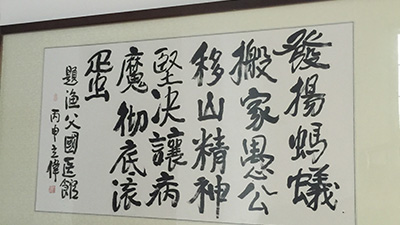 發揚螞蟻
搬家愚公
移山精神
堅決讓病
魔徹底滾
蛋
題漁父國医館
丙申立偉